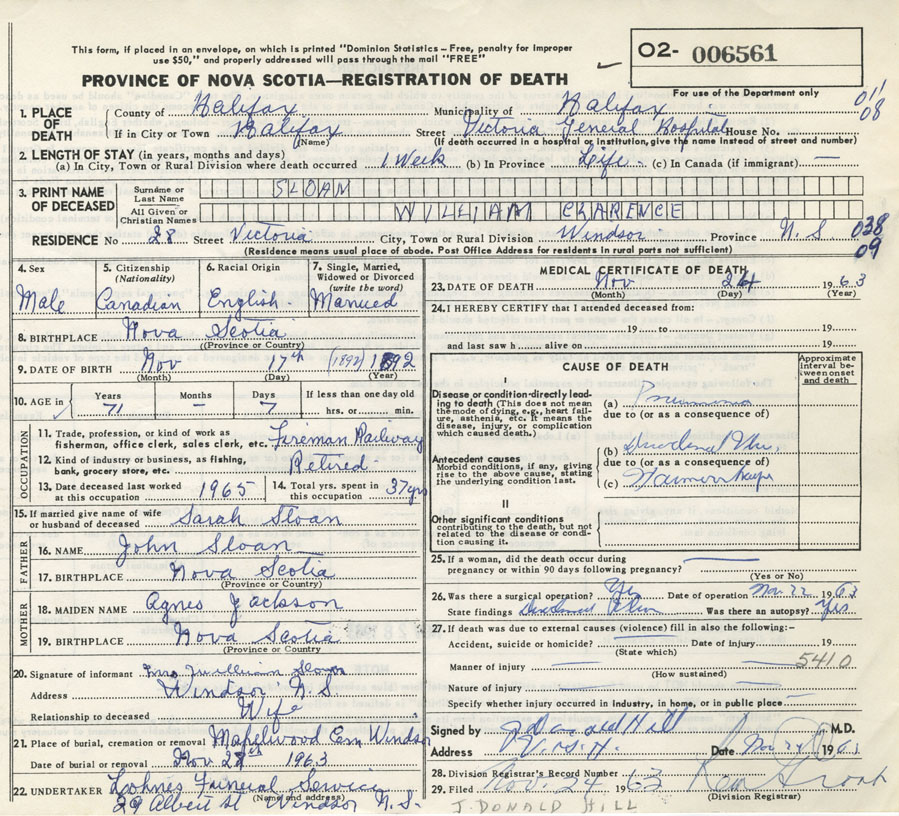 This form, if placed in an envelope, on which is printed "Dominion Statistics – Free, penalty for improper
use $50," and properly addressed will pass through the mail "FREE"
O2- 006561
PROVINCE OF NOVA SCOTIA—REGISTRATION OF DEATH
For use of the Department only
011
08
1. PLACE OF DEATH
County of Halifax Municipality of Halifax
If in City or Town Halifax Street Victoria General Hospital House No.
(Name) (If death occurred in a hospital or institution, give the name instead of street and number)
2. LENGTH OF STAY (in years, months and days)
(a) In City, Town or Rural Division where death occurred 1 Week (b) In Province Life (c) In Canada (if immigrant) —
3. PRINT NAME OF DECEASED
Surname or Last Name SLOAN
All Given or Christian Names WILLIAM CLARENCE
RESIDENCE No 28 Street Victoria City, Town or Rural Division Windsor Province N. S 038
09
(Residence means usual place of abode. Post Office Address for residents in rural parts not sufficient)
4. Sex Male
5. Citizenship (Nationality) Canadian
6. Racial Origin English
7. Single, Married, Widowed or Divorced (write the word) Married
8. BIRTHPLACE Nova Scotia
(Province or Country)
9. DATE OF BIRTH Nov 17th (1892) 1892
(Month) (Day) (Year)
10. AGE Years 71 Months – Days 7 If less than one day old
hrs. or min.
OCCUPATION
11. Trade, profession, or kind of work as
fisherman, office clerk, sales clerk, etc. Fireman Railway
12. Kind of industry or business, as fishing,
bank, grocery store, etc. Retired
13. Date deceased last worked
at this occupation 1965
14. Total yrs. spent in
this occupation 37 yrs
15. If married give name of wife
or husband of deceased Sarah Sloan
FATHER
16. NAME John Sloan
17. BIRTHPLACE Nova Scotia
(Province or Country)
MOTHER
18. MAIDEN NAME Agnes Jackson
19. BIRTHPLACE Nova Scotia
(Province or Country)
20. Signature of informant Mrs William Sloan
Address Windsor N. S
Relationship to deceased Wife
21. Place of burial, cremation or removal Maplewood Cem Windsor
Date of burial or removal Nov 27th 1963
22. UNDERTAKER Lohnes Funeral Service
(Name and address)
29 Albert St Windsor N. S.
MEDICAL CERTIFICATE OF DEATH
23. DATE OF DEATH Nov 24 1963
(Month) (Day) (Year)
24. I HEREBY CERTIFY that I attended deceased from:
19 to 19
and last saw h alive on 19
CAUSE OF DEATH
Approximate interval between onset and death
I
Disease or condition directly leading to death (This does not mean
the mode of dying, e.g., heart failure, asthenia, etc. It means the
disease, injury, or complication
which caused death.)
(a)
due to (or as a consequence of)
Antecedent causes
Morbid conditions, if any, giving
rise to the above cause, stating
the underlying condition last.
(b) Duodenal Ulcer
due to (or as a consequence of)
(c)
II
Other significant conditions
contributing to the death, but not
related to the disease or condition causing it.
25. If a woman, did the death occur during
pregnancy or within 90 days following pregnancy?
(Yes or No)
26. Was there a surgical operation? Yes Date of operation Nov. 22 1963
State findings Duodenal Ulcer Was there an autopsy? Yes
27. If death was due to external causes (violence) fill in also the following:–
Accident, suicide or homicide? Date of injury 19
(State which)
5410
Manner of injury
(How sustained)
Nature of injury
Specify whether injury occurred in industry, in home, or in public place
Signed by J Donald Hill M.D.
Address V. G. H. Date Nov 24 1963
28. Division Registrar's Record Number
29. Filed Nov. 24 1963
(Division Registrar)
J. DONALD HILL